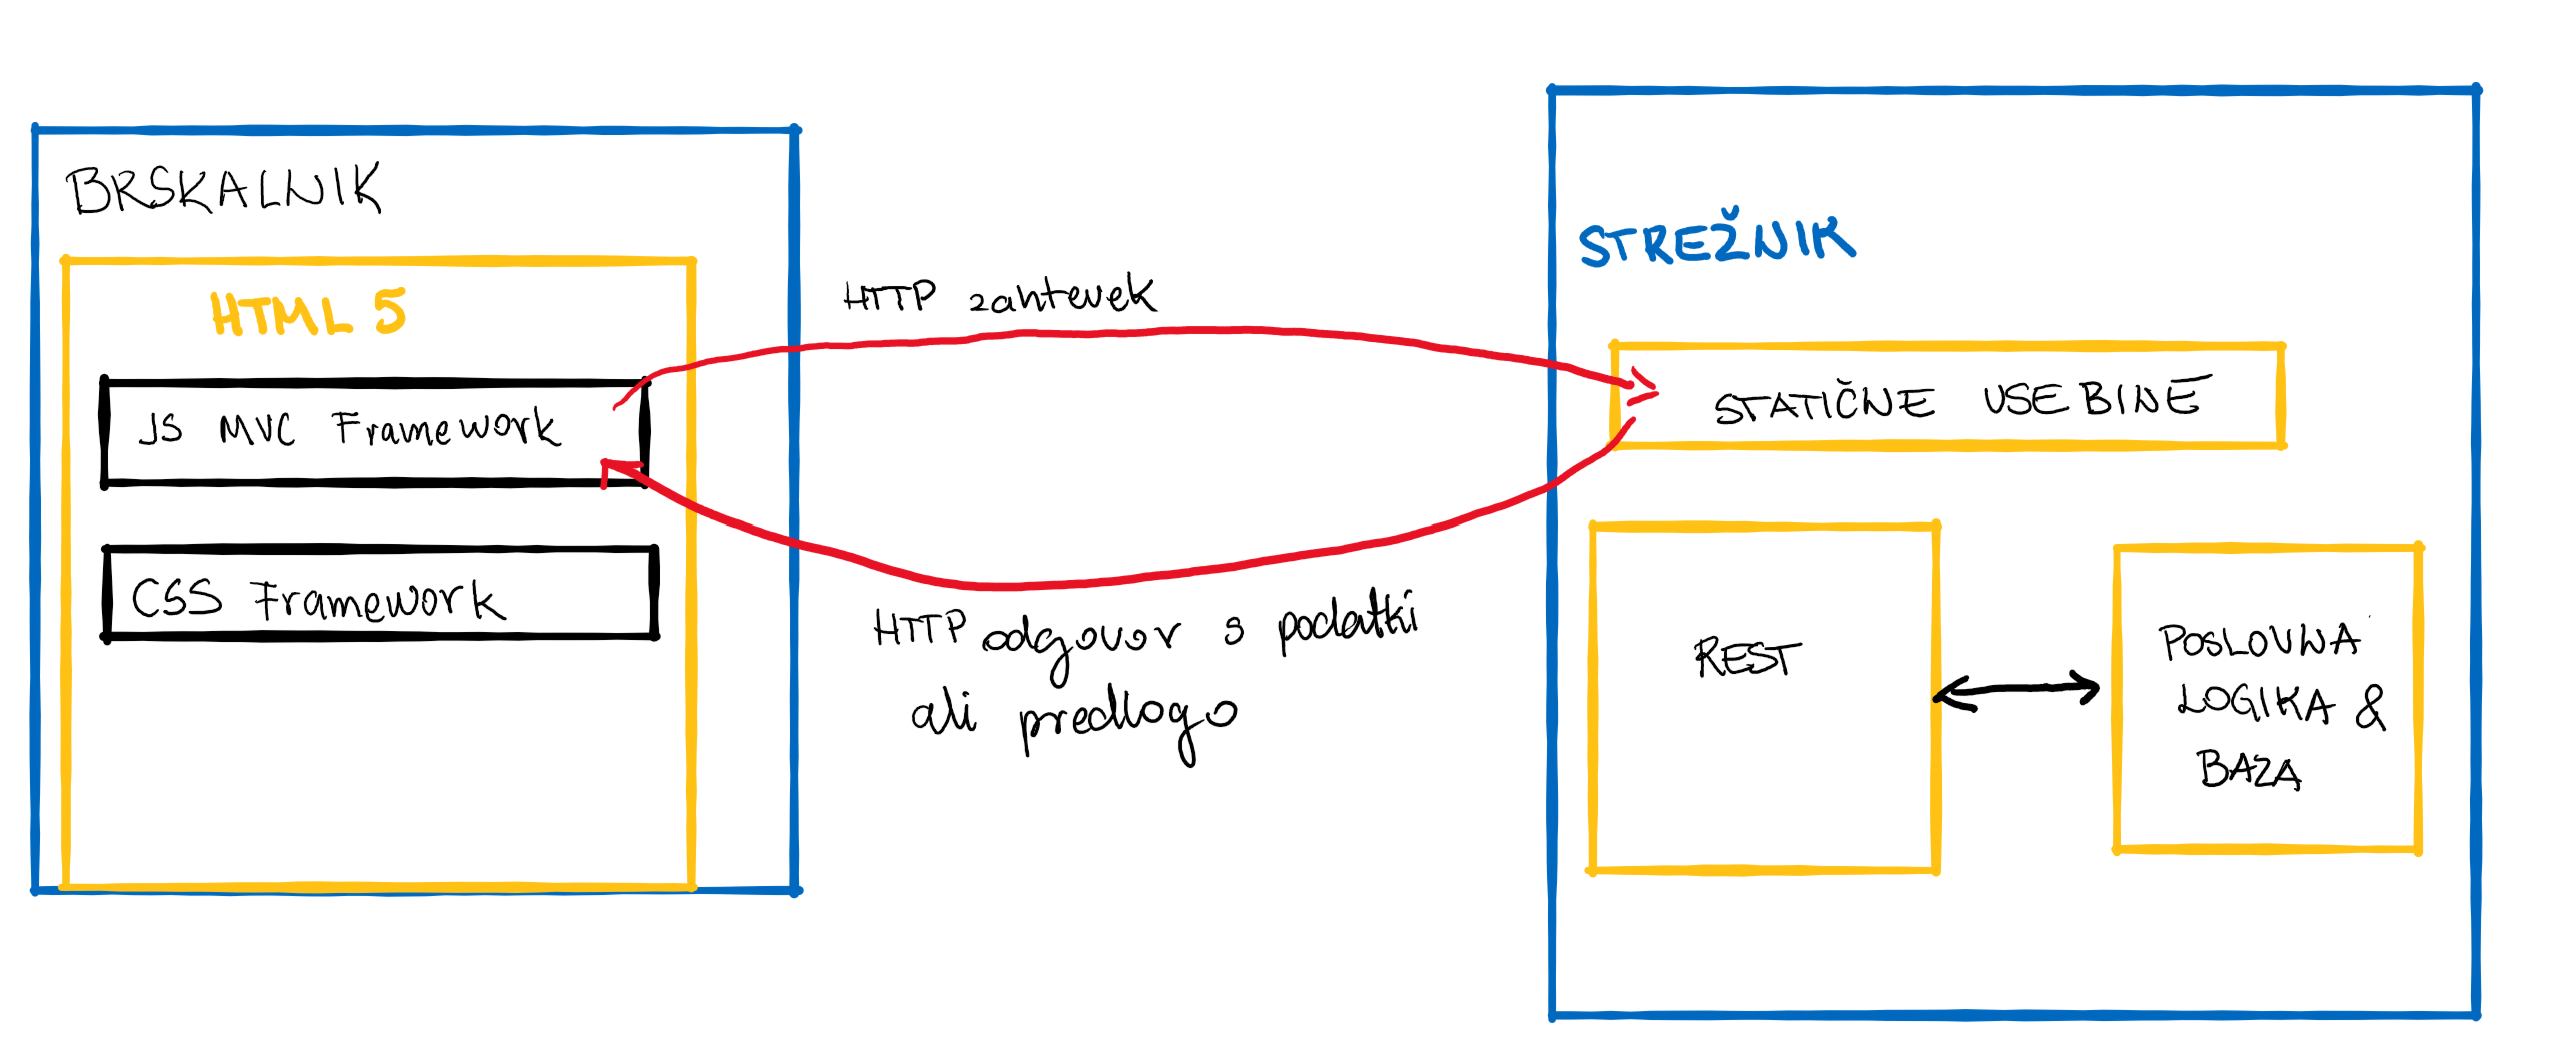 BRSKALNIK
HTML 5
JS MVC Framework
CSS Framework
HTTP zahtevek
HTTP odgovor s podatki
ali predlogo
STREŽNIK
STATIČNE VSEBINE
REST
POSLOVNA
LOGIKA &
BAZA